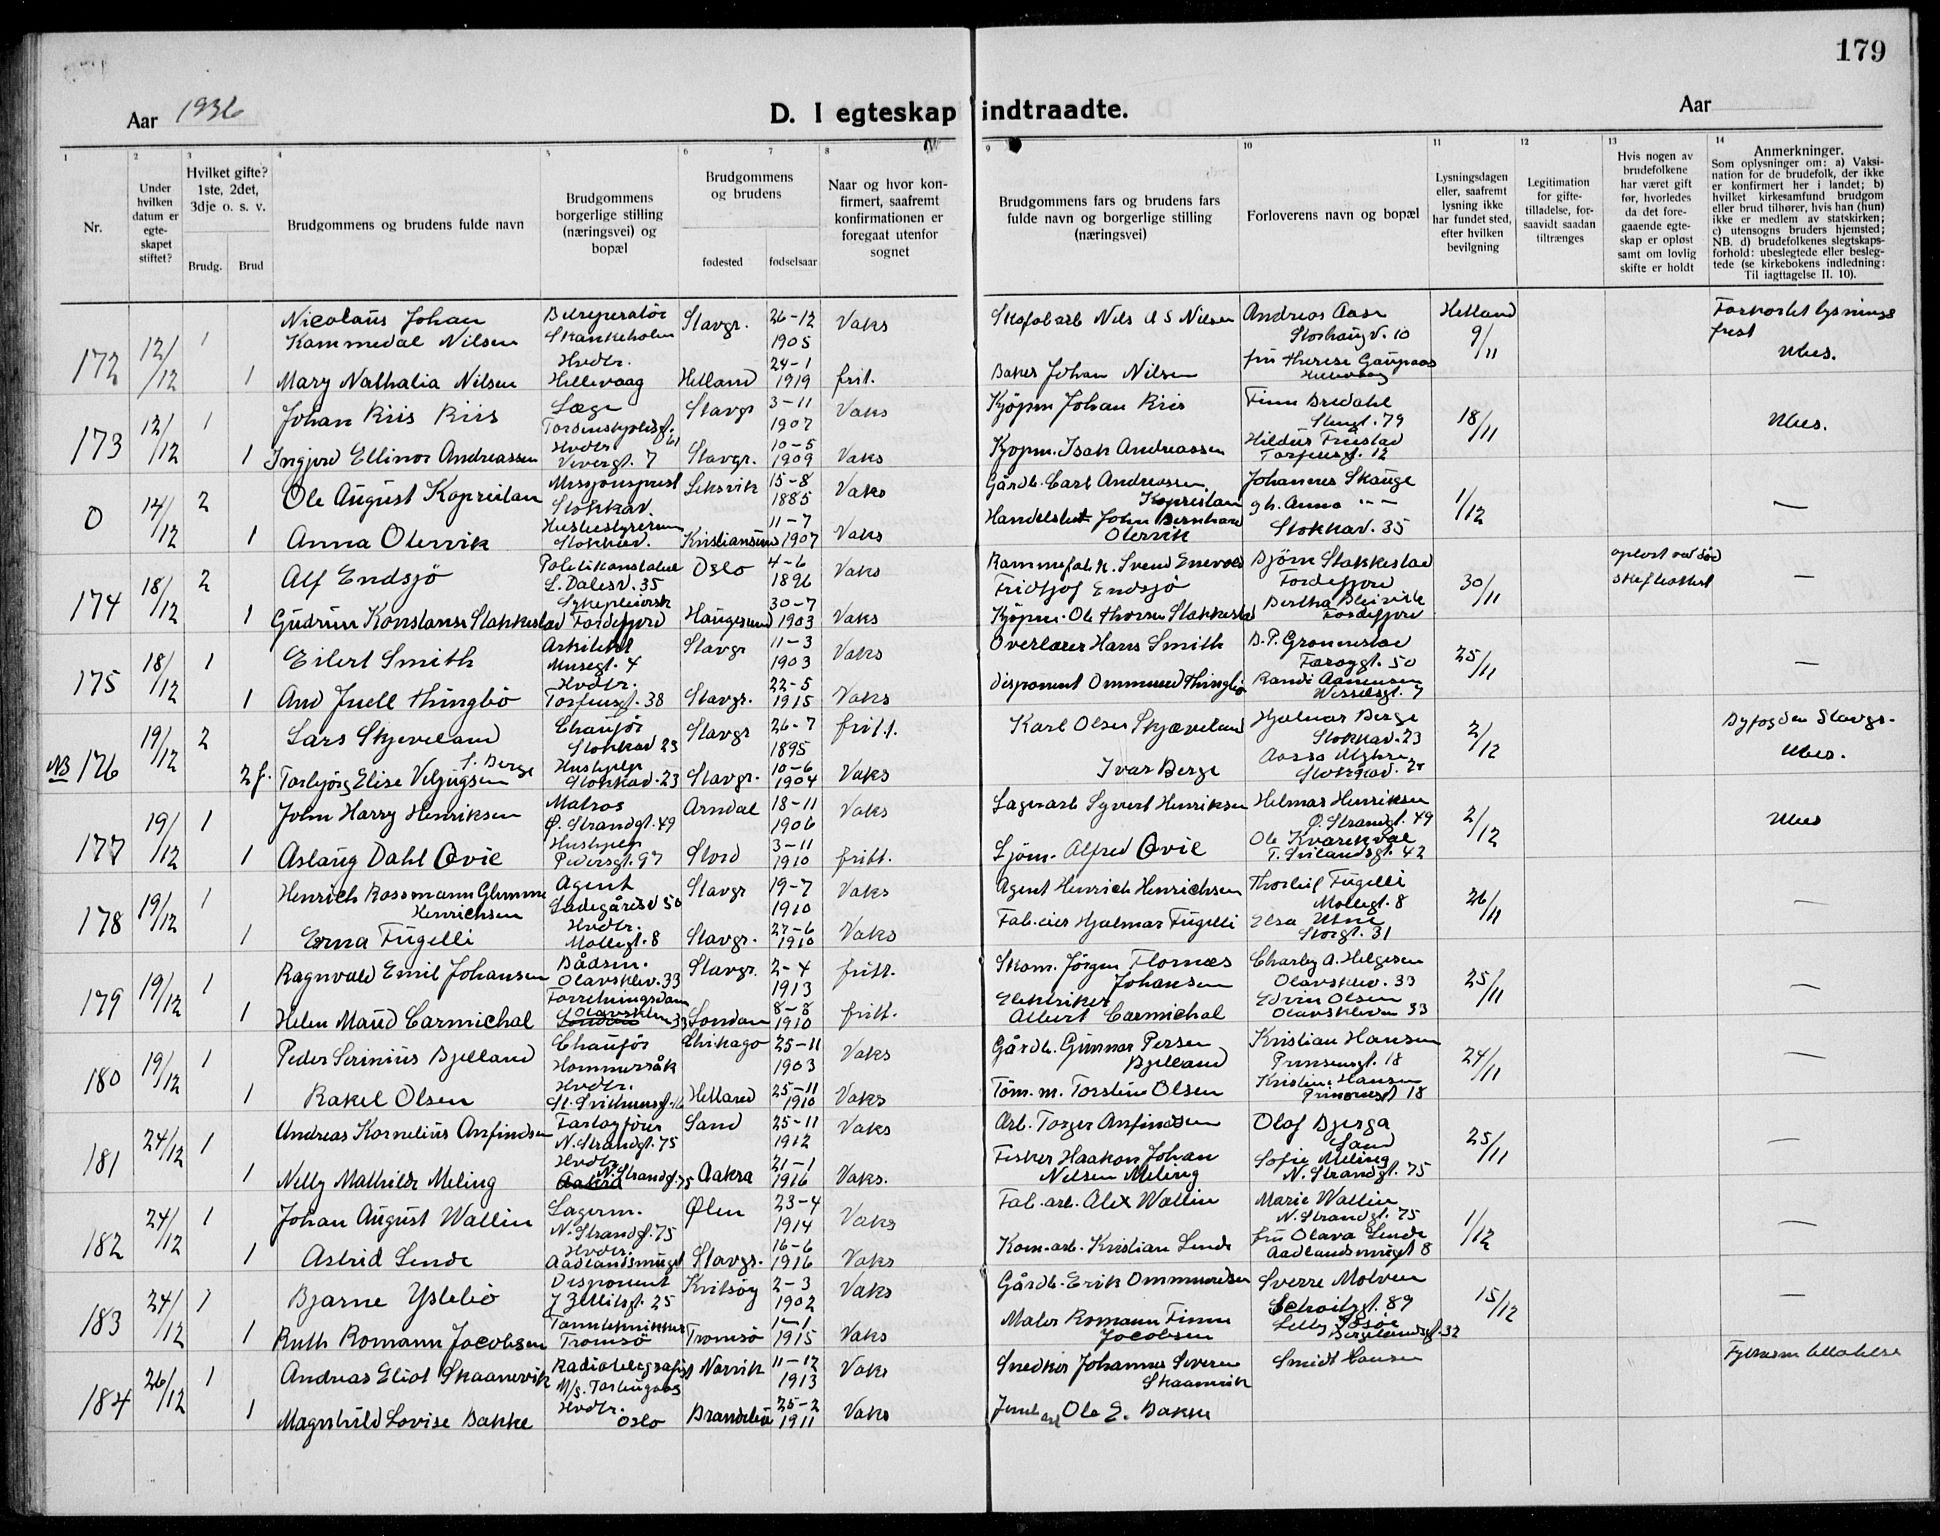 179
Aar 1936
D. I egteskap indtraadte.
Aar
1
2
3
4
5
6
7
8
9
10
11
12
13
14
Nr.
Under hvilken datum er egteskapet stiftet?
Hvilket gifte? 1ste, 2det, 3dje o. s. v.
Brudg.
Brud
Brudgommens og brudens fulde navn
Brudgommens borgerlige stilling (næringsvei) og bopæl
Brudgommens og brudens
fødested
fødselsaar
Naar og hvor konfirmert, saafremt konfirmationen er foregaat utenfor sognet
Brudgommens fars og brudens fars fulde navn og borgerlige stilling (næringsvei)
Forloverens navn og bopæl
Lysningsdagen eller, saafremt lysning ikke har fundet sted, efter hvilken bevilgning
Legitimation for giftetilladelse, forsaavidt saadan tiltrænges
Hvis nogen av brudefolkene har været gift før, hvorledes da det foregaaende egteskap er opløst samt om lovlig skifte er holdt
Anmerkninger.
Som oplysninger om: a) Vaksination for de brudefolk, der ikke er konfirmert her i landet; b) hvilket kirkesamfund brudgom eller brud tilhører, hvis han (hun) ikke er medlem av statskirken; c) utensogns bruders hjemsted; NB. d) brudefolkenes slegtskapsforhold: ubeslegtede eller beslegtede (se kirkebokens indledning: Til iagttagelse II. 10).
172 12/12 1 Nicolaus Johan Kammedal Nilsen Stavgr. 26-12 1905 Vaks Nils A S Nilsen Andreas Aase Storhaugv. 10 Hetland 9/11 Ubes.
1 Mary Nathalia Nilsen Hvdtr. Hillevaag Hetland 24-1 1919 frit. Baker Johan Nilsen fru Therese Gaupaas Hillevaag
173 12/12 1 Johan Riis Riis Læge Stavgr 3-11 1907 Vaks Kjøpm Johan Riis Finn Bredahl 79 18/11 Ubes.
1 Ingjerd Ellinor Andreassen Hvdtr 7 Stavgr. 10-5 1909 Vaks Kjøpm. Isak Andreassen
0 14/12 2 Ole August Kopreitan Misjonsprest Stokkav. Leksvik 15-8 1885 Vaks Gårdb. Carl Andreassen Kopreitan Johannes Skauge 1/12 —
1 Anna Olervik Husbestyrerinne Stokkav. Kristiansund 11-7 1907 Vaks John Bernhard Olervik gh. Anna — Stokkav. 35
174 18/12 2 Alf Endsjö Politikonstabel L. Dalesv. 35 Oslo 4-6 1896 Vaks Fridtjof Endsjö Bjørn Stakkestad Fördesfjord 30/11 —
1 Gudrun Konstanse Stakkestad Sykepleierske Fördesfjord Haugesund 30-7 1903 Vaks Kjøpm. Ole Thorsen Stakkestad Bertha Fördesfjord
175 18/12 1 Eilert Smith Arkitekt Musegt. 4 Stavgr 11-3 1903 Vaks Overlærer Hans Smith B. P. Grønnestad 50 25/11 —
1 Torfæusgt. 38 Stavgr. 22-5 1915 Vaks Disponent Ommund Thingbø Randi Aanensen 7
NB 176 19/12 2 Lars Skjeveland Chaufför Stokkav 23 Stavgr 26-7 1895 fritt. Karl Olsen Skjæveland Hjalmar Berge Stokkav. 23 2/12 Byfogden Stavgr. Ubes.
2 f. Torbjörg Elise Viljugsen f. Berge Hushjelp Stokkav. 23 Stavgr. 10-6 1904 Vaks Ivar Berge
177 19/12 1 John Harry Henriksen Matros Ø. Strandgt. 49 Arndal 18-11 1906 Vaks Lagerarb Syvert Henriksen Helmar Henriksen Ø. Strandgt. 49 2/12 Ubes
1 Aslaug Dahl Qvie Hushjelp Pedersgt. 97 Stord 3-11 1910 fritt. Sjøm. Alfred Qvie Ole Kvarekval 42
178 19/12 1 Henrich Rossmann Glimme Henrichsen Agent Ladegårdsv 50 Stavgr 19-7 1910 Vaks Agent Henrich Henrichsen Thorleif Fugelli Møllegt. 8 26/11 —
1 Erna Fugelli Hvdtr. Møllegt. 8 Stavgr. 27-6 1910 Vaks Hjalmar Fugelli Elsa Utne Storgt. 31
179 19/12 1 Ragnvald Emil Johansen Bådsm. Olavsklev. 33 Stavgr. 2-4 1913 fritt. Skom. Jörgen Flornæs Johansen Charley A. Helgesen Olavsklev. 33 25/11 —
1 Helen Maud Carmichal Forretningsdam Olavskleven 33 London 8-8 1910 fritt. Elektriker Albert Carmichal Edvin Olsen Olavskleven 33
180 19/12 1 Peder Serinius Bjelland Chaufför Hommersåk Chikago 25-11 1903 Vaks Gårdb. Gunnar Persen Bjelland Kristian Hansen Prinsensgt. 18 24/11 —
1 Rakel Olsen Hvdtr. Hetland 25-11 1910 Vaks Töm. m. Torstein Olsen Kristine Hansen Prinsensgt 18
181 24/12 1 Andreas Kornelius Anfindsen N. Strandgt. 75 Sand 25-11 1912 Vaks Arb. Torger Anfindsen Olaf Bjerga Sand 25/11 —
1 Nelly Mathilde Meling Hvdtr N. Strandgt. 75 Aakra 21-1 1916 Vaks. Fisker Haakon Johan Nilsen Meling Sofie Meling N. Strandgt. 75
182 24/12 1 Johan August Wallin Lagerm. N. Strandgt. 75 Ølen 23-4 1914 Vaks Fab. arb. Alex Wallin Marie Wallin N. Strandgt. 75 1/12 —
1 Astrid Lende Hvdtr. Stavgr. 16-6 1916 Vaks Kom. arb. Kristian Lende fru Olava Lende 8
183 24/12 1 Bjarne Ystebö Disponent 25 Kvitsøy 2-3 1902 Vaks Gårdb. Erik Ommundsen Sverre Molven 89 15/12 —
1 Ruth Romann Jacobsen Tanntekniker Tromsö Tromsö 1-1 1915 Vaks Maler Romann Finn Jacobsen Bergelandsgt. 32
184 26/12 1 Andreas Eliot Skaanevik Radiotelegrafist Narvik 11-12 1913 Vaks Snedker Johannes Skaanevik Smidt Hansen
1 Magnhild Lovise Bakke Hvdtr. Oslo 25-2 1911 Vaks Ole E. Bakke